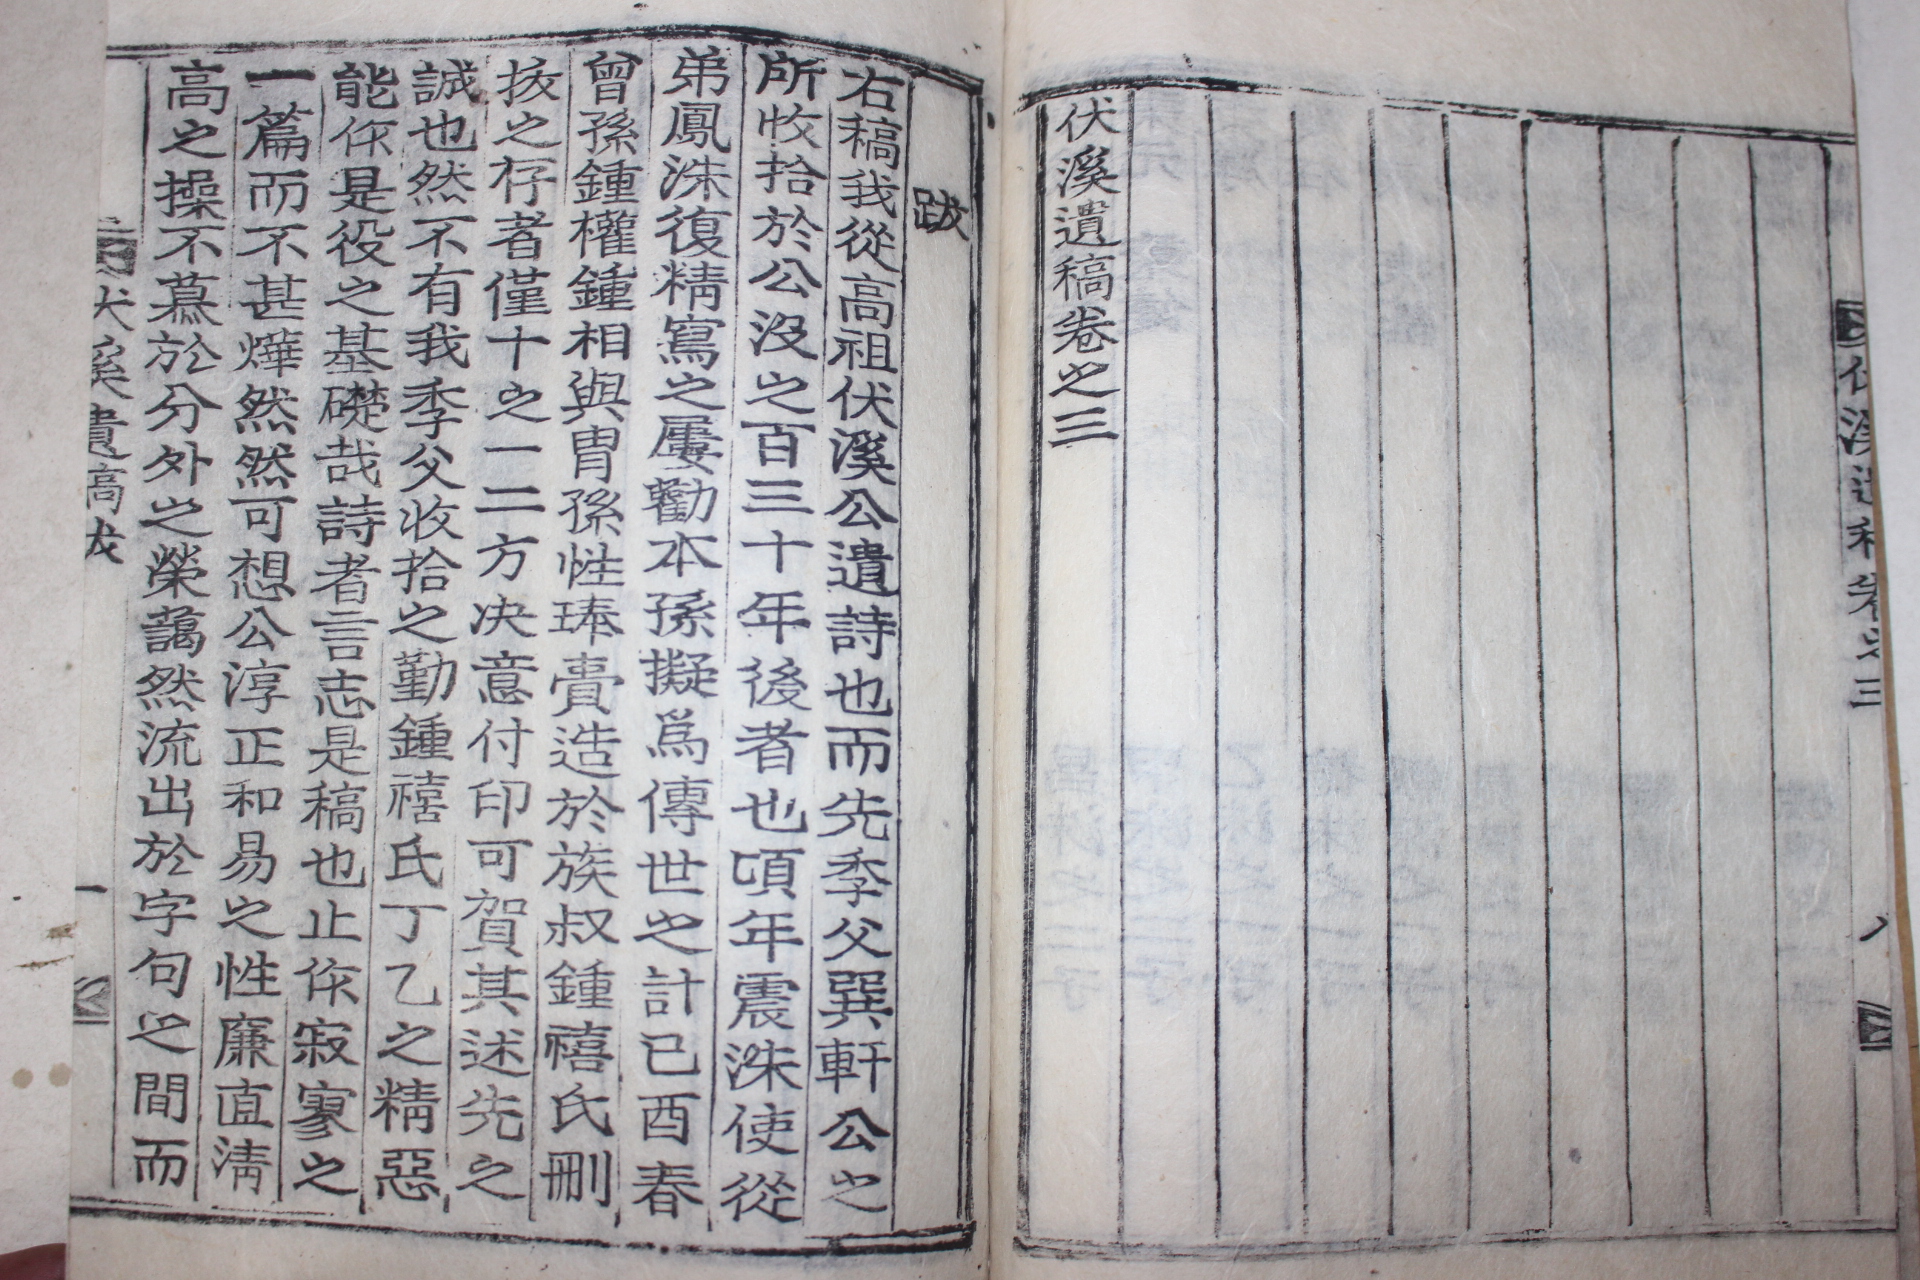 伏溪遺稿卷之三
八
伏溪遺稿卷之三
跋
右稿我從高祖伏溪公遺詩也而先季父巽軒公之
所收拾於公沒之百三十年後者也頃年震洙使從
弟鳳洙復精寫之屢勸本孫擬爲傳世之計已酉春
曾孫鍾權鍾相與胄孫性琫賫造於族叔鍾禧氏刪
拔之存者僅十之一二方决意付印可賀其述先之
誠也然不有我季父收拾之勤鍾禧氏丁乙之精惡
能作是役之基礎哉詩者言志是稿也止作寂寥之
一篇而不甚燁然然可想公淳正和易之性廉直淸
高之操不慕於分外之榮藹然流出於字句之間而
伏溪遺稿跋
一